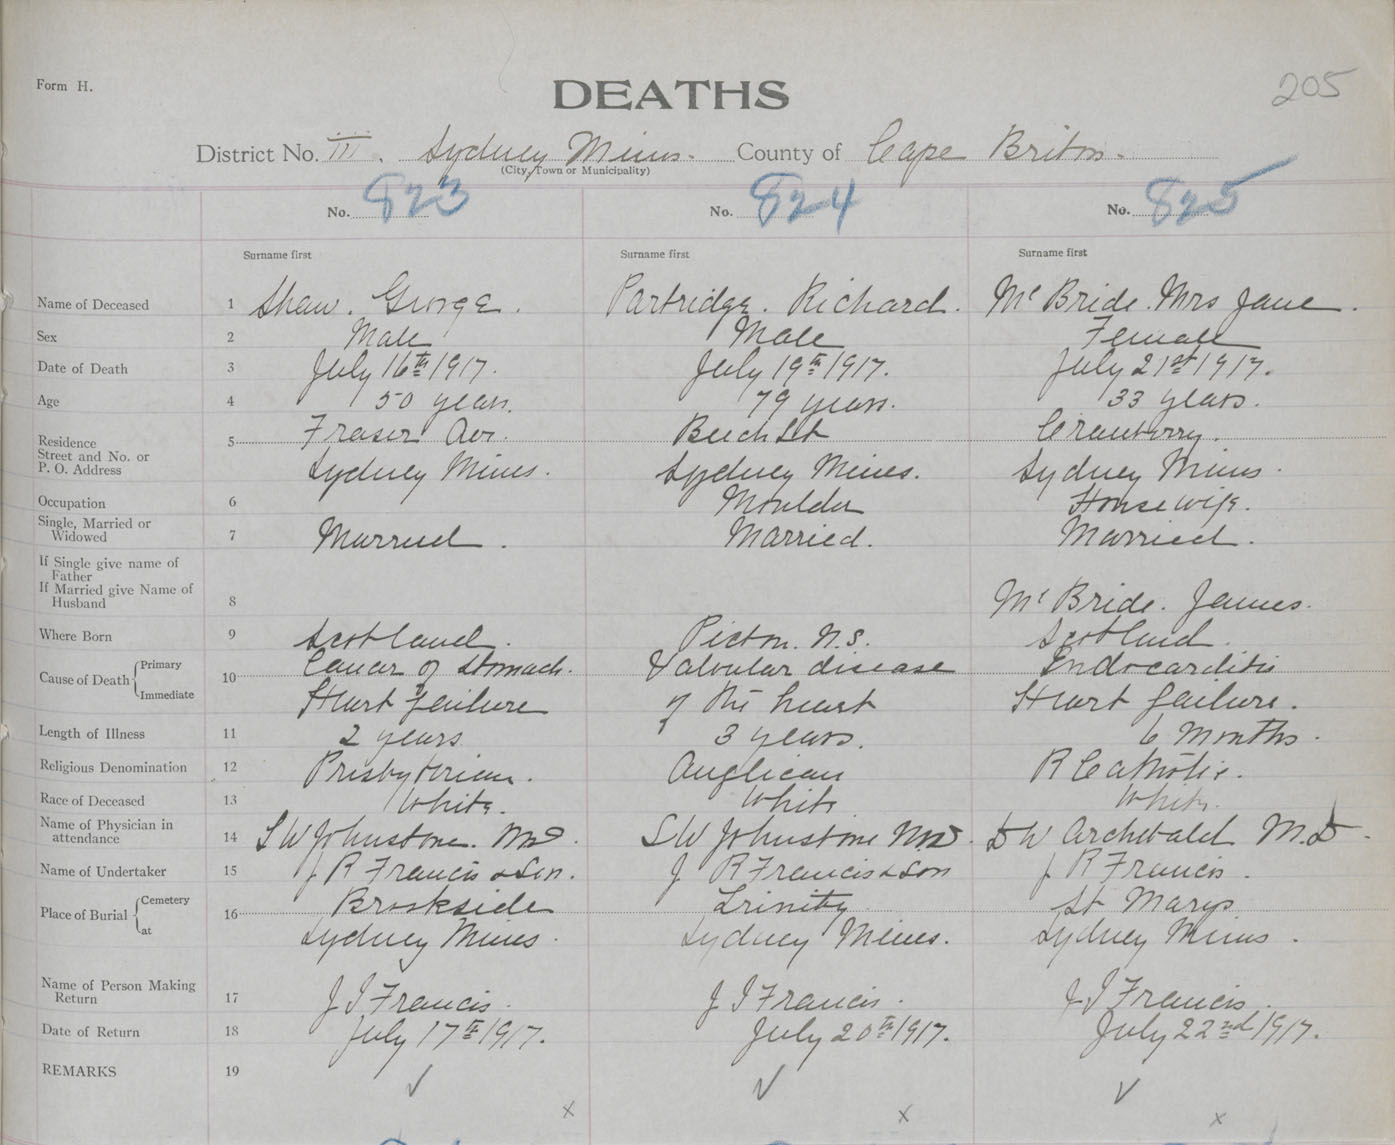 Form H.
DEATHS
205
District No. III. Sydney Mines. County of Cape Briton.
(City, Town or Municipality)
No. 823 No. 824 No. 825
Surname first Surname first Surname first
Name of Deceased 1 Shaw. George. Partridge. Richard. Mc Bride. Mrs Jane.
Sex 2 Male Male Female
Date of Death 3 July 16th 1917. July 19th 1917. July 21st 1917.
Age 4 50 years. 79 years. 33 years.
Residence 5 Fraser Ave. Beech St Cranberry.
Street and No. or
P. O. Address Sydney Mines. Sydney Mines. Sydney Mines.
Occupation 6 Moulder Housewife.
Single, Married or
Widowed 7 Married. Married. Married.
If Single give name of
Father
If Married give Name of
Husband 8 Mc Bride. James.
Where Born 9 Scotland. Picton. N.S. Scotland
Cause of Death Primary 10 Cancer of Stomach. Valvular disease Endocarditis
Immediate Heart failure of the heart Heart failure.
Length of Illness 11 2 years 3 years. 6 Months.
Religious Denomination 12 Presbyterian. Anglican R Catholic.
Race of Deceased 13 White. White White.
Name of Physician in
attendance 14 S W Johnstone. MD. S W Johnstone MD. D W Archibald M.D.
Name of Undertaker 15 J R Francis & Son. J R Francis & Son J R Francis.
Place of Burial Cemetery 16 Brookside Trinity St Marys
at Sydney Mines. Sydney Mines. Sydney Mines.
Name of Person Making
Return 17 J I Francis. J I Francis. J I Francis.
Date of Return 18 July 17th 1917. July 20th 1917. July 22nd 1917.
REMARKS 19 ✓ ✓ ✓
x x x